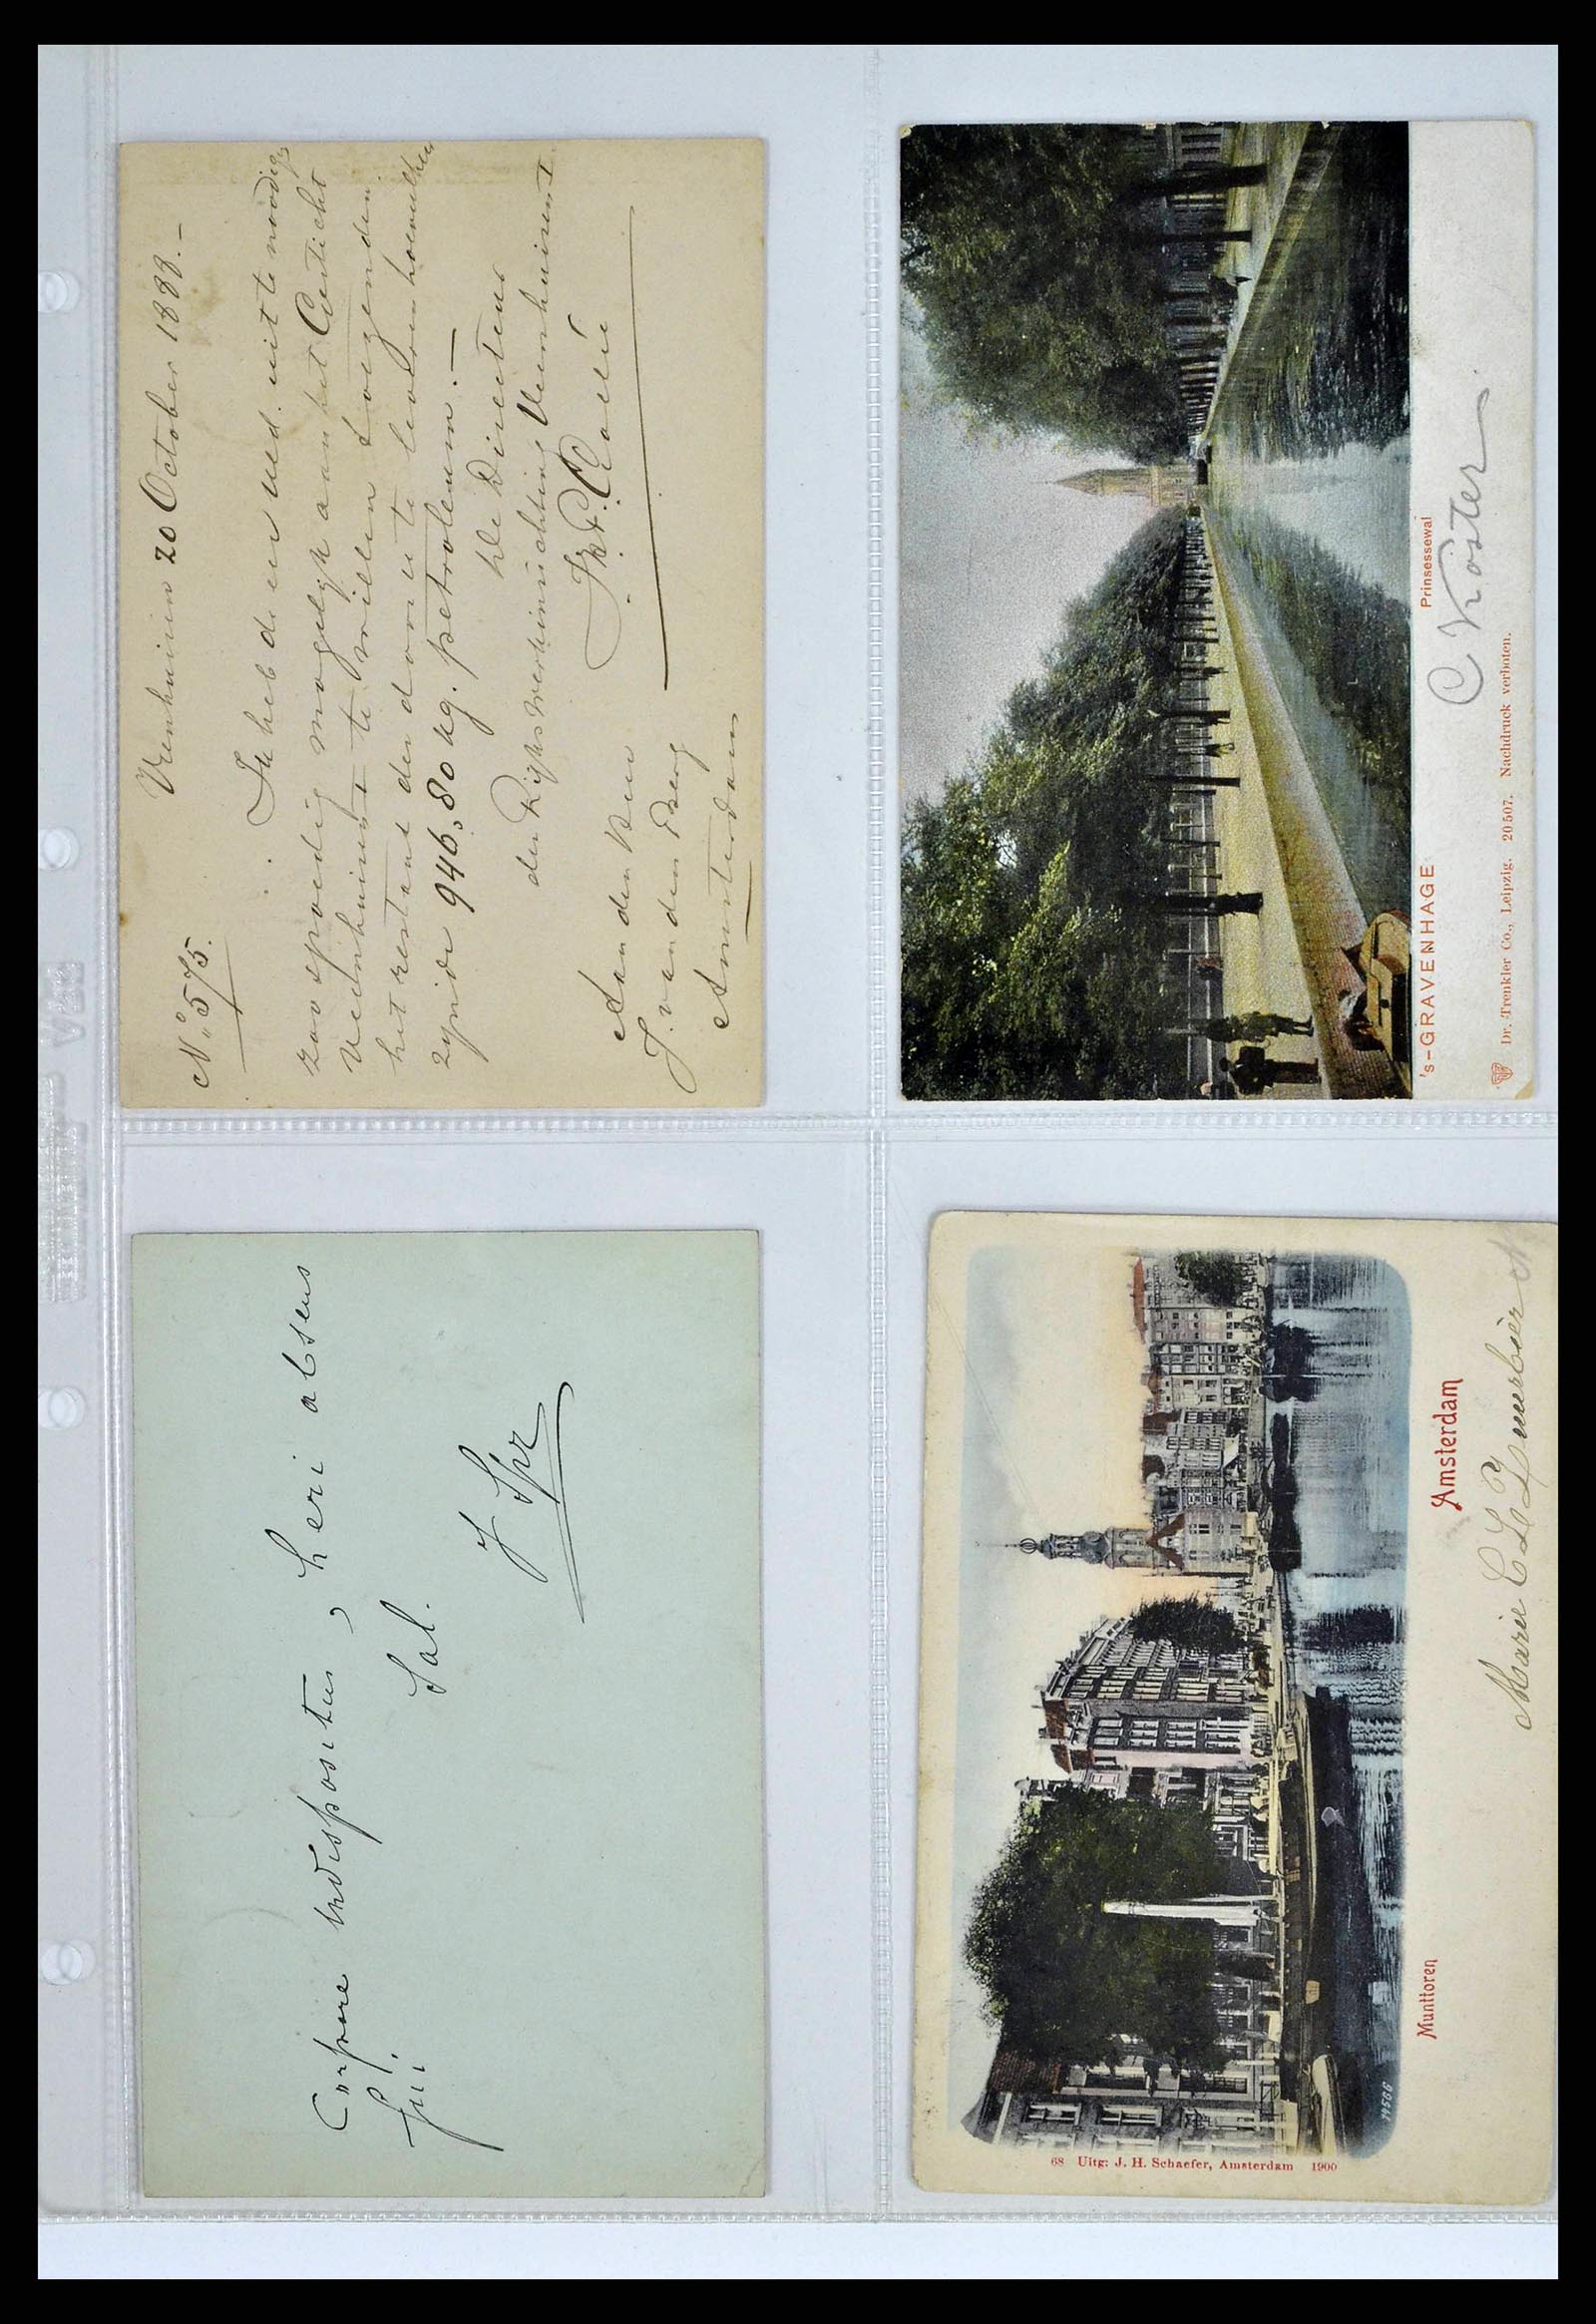 Veenhuizen 20 October 1888.–
No. 575.
Ik heb de eer UEd. uit te noodigen
zoo spoedig mogelijk aan het Gesticht
Veenhuizen I te willen toezenden
het restant der door u te leveren hoeveelheid
zijnde 946,80 Kg. petroleum.–
De Directeur
der Rijks Werkinrichting Veenhuizen I
Aan den Heer
J. van den Berg
Amsterdam
's-GRAVENHAGE
Prinsessewal
C Koster
Dr. Trenkler Co., Leipzig. 20507. Nachdruck verboten.
Corpore indispositus, heri absens
fui.
Sal.
J Spr
14566
68 Uitg: J. H. Schaefer, Amsterdam 1900
Munttoren
Amsterdam
Marie C